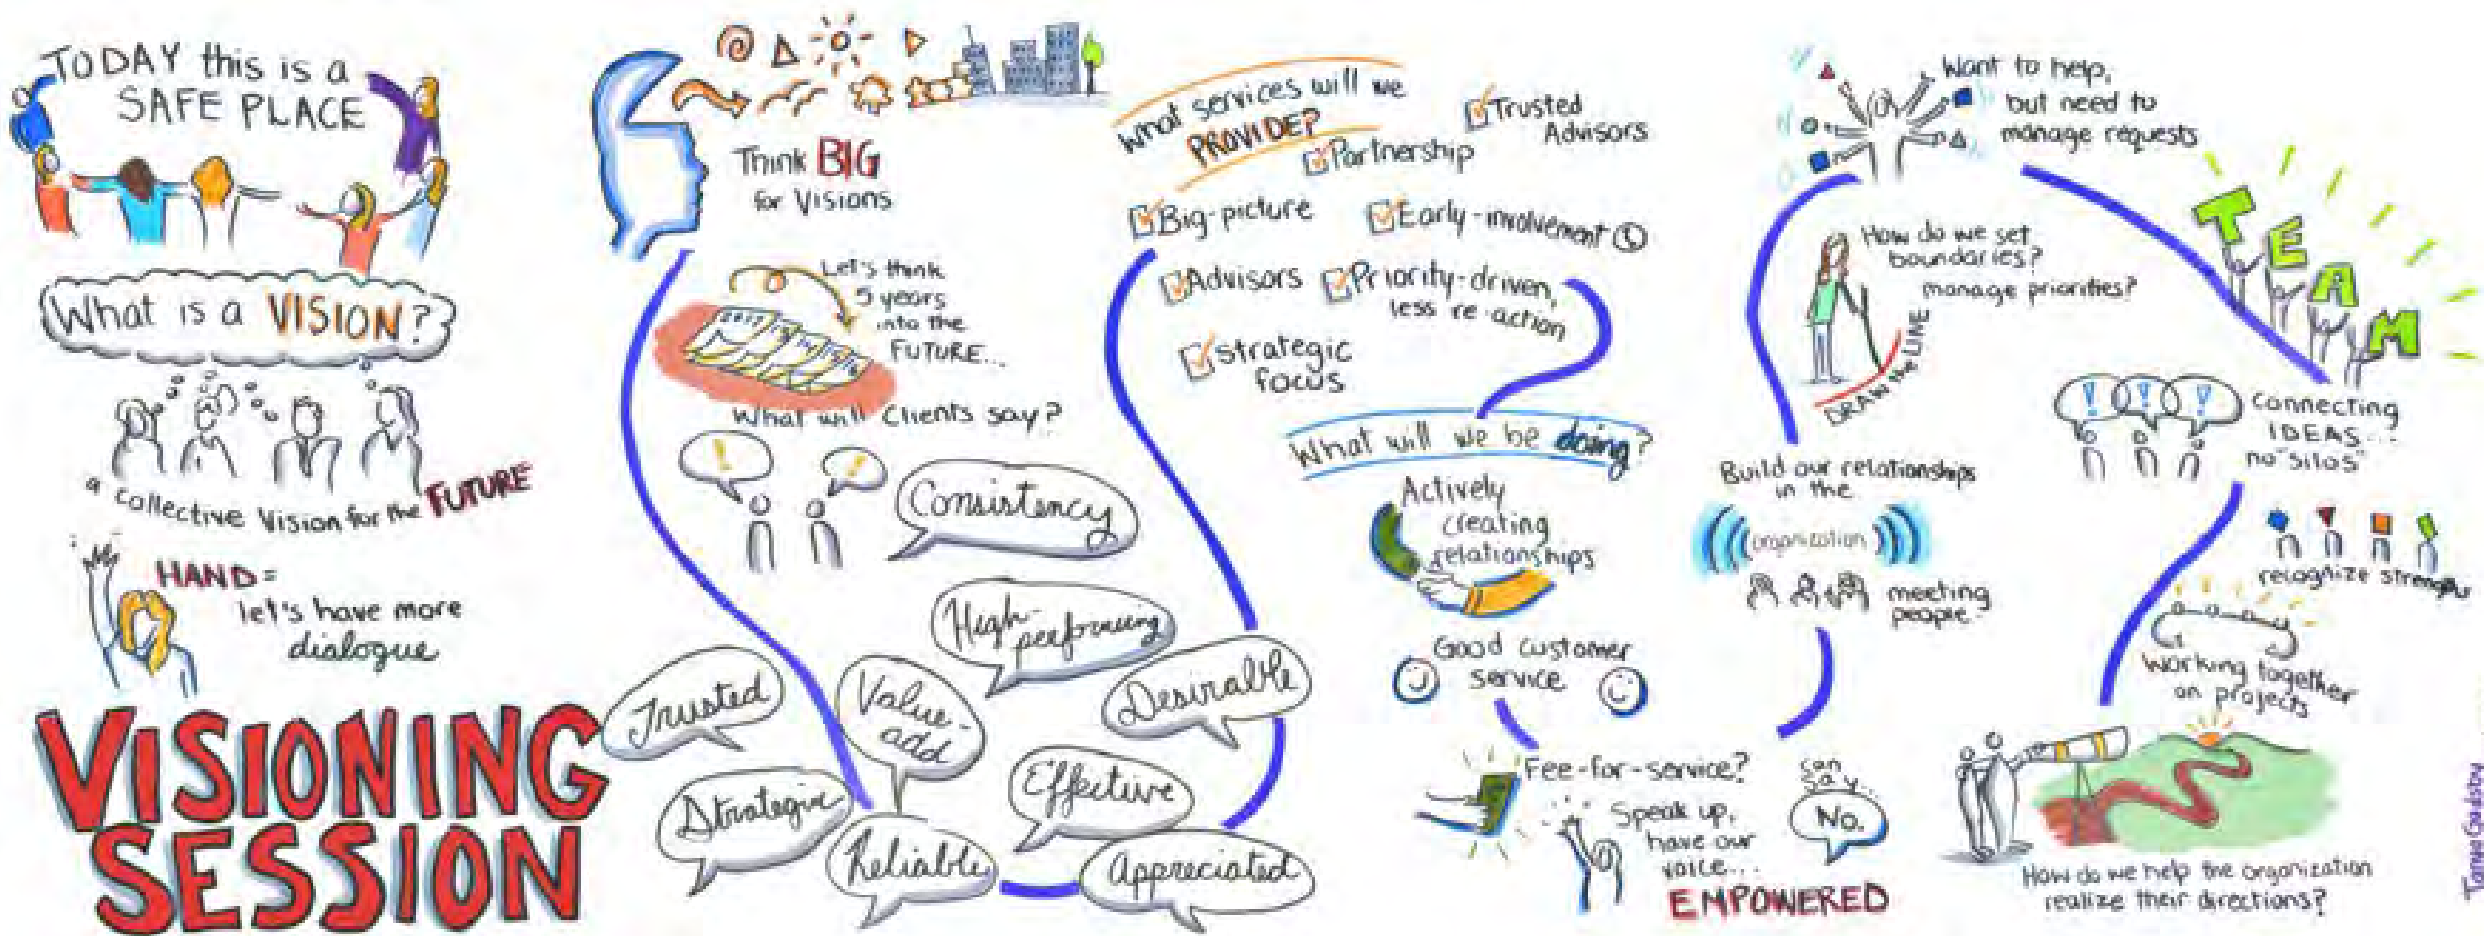 TODAY this is a
SAFE PLACE
What is a VISION?
a collective vision for the FUTURE
HAND =
let's have more
dialogue
VISIONING
SESSION
Think BIG
for Visions
Let's think
5 years
into the
FUTURE...
What will Clients say?
!
!
Consistency
High-
performing
Trusted
Value-
add
Desirable
Strategic
Effective
Reliable
Appreciated
What services will we
PROVIDE?
Trusted
Advisors
Partnership
Big-picture
Early-involvement
Advisors
Priority-driven,
less re-action
strategic
focus
What will we be doing?
Actively
creating
relationships
Good customer
service
Fee-for-service?
Speak up,
have our
voice...
EMPOWERED
can
say...
No.
Want to help,
but need to
manage requests
How do we set
boundaries?
manage priorities?
DRAW the LINE
Build our relationships
in the
organization
meeting
people
TEAM
! ! !
connecting
IDEAS...
no "silos"
recognize strengths
Working together
on projects
How do we help the organization
realize their directions?